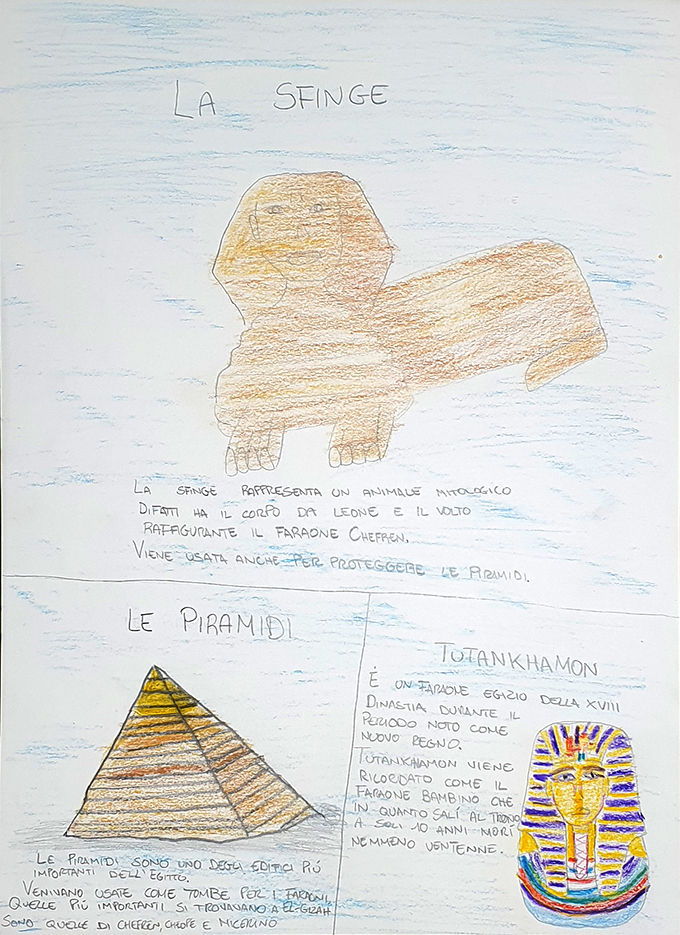 LA SFINGE
LA SFINGE RAPPRESENTA UN ANIMALE MITOLOGICO
DIFATTI HA IL CORPO DA LEONE E IL VOLTO
RAFFIGURANTE IL FARAONE CHEFREN.
VIENE USATA ANCHE PER PROTEGGERE LE PIRAMIDI.
LE PIRAMIDI
LE PIRAMIDI SONO UNO DEGLI EDIFICI PIÚ
IMPORTANTI DELL'EGITTO.
VENIVANO USATE COME TOMBE PER I FARAONI.
QUELLE PIÚ IMPORTANTI SI TROVANANO A EL-GIZAH
SONO QUELLE DI CHEFREN, CHEOPE E MICERINO
TUTANKHAMON
É UN FARAONE EGIZIO DELLA XVIII
DINASTIA DURANTE IL
PERIODO NOTO COME
NUOVO REGNO.
TUTANKHAMON VIENE
RICORDATO COME IL
FARAONE BAMBINO CHE
IN QUANTO SALÍ AL TRONO
A SOLI 10 ANNI MORÍ
NEMMENO VENTENNE.